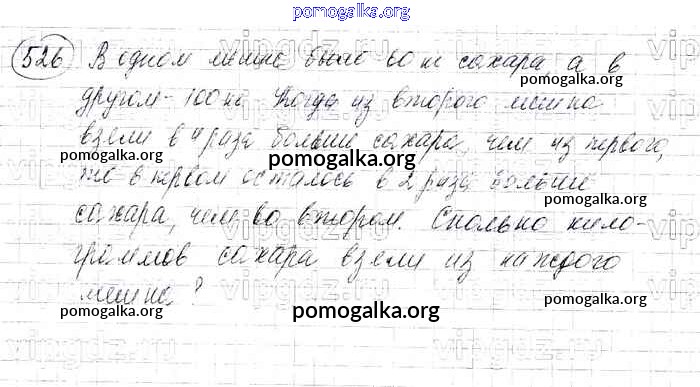 pomogalka.org
526 В одном мешке было 60 кг сахара а в
pomogalka.org
другом - 100 кг Когда из второго мешка
взяли в 4 раза больше сахара, чем из первого,
pomogalka.org pomogalka.org pomogalka.org
то в первом осталось в 2 раза больше
pomogalka.org
сахара, чем во втором. Сколько кило-
граммов сахара взяли из каждого
мешка?
pomogalka.org pomogalka.org pomogalka.org